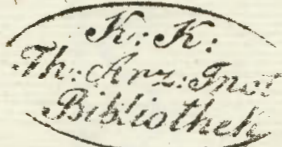 K: K:
Th: Arz: Inst
Bibliothek